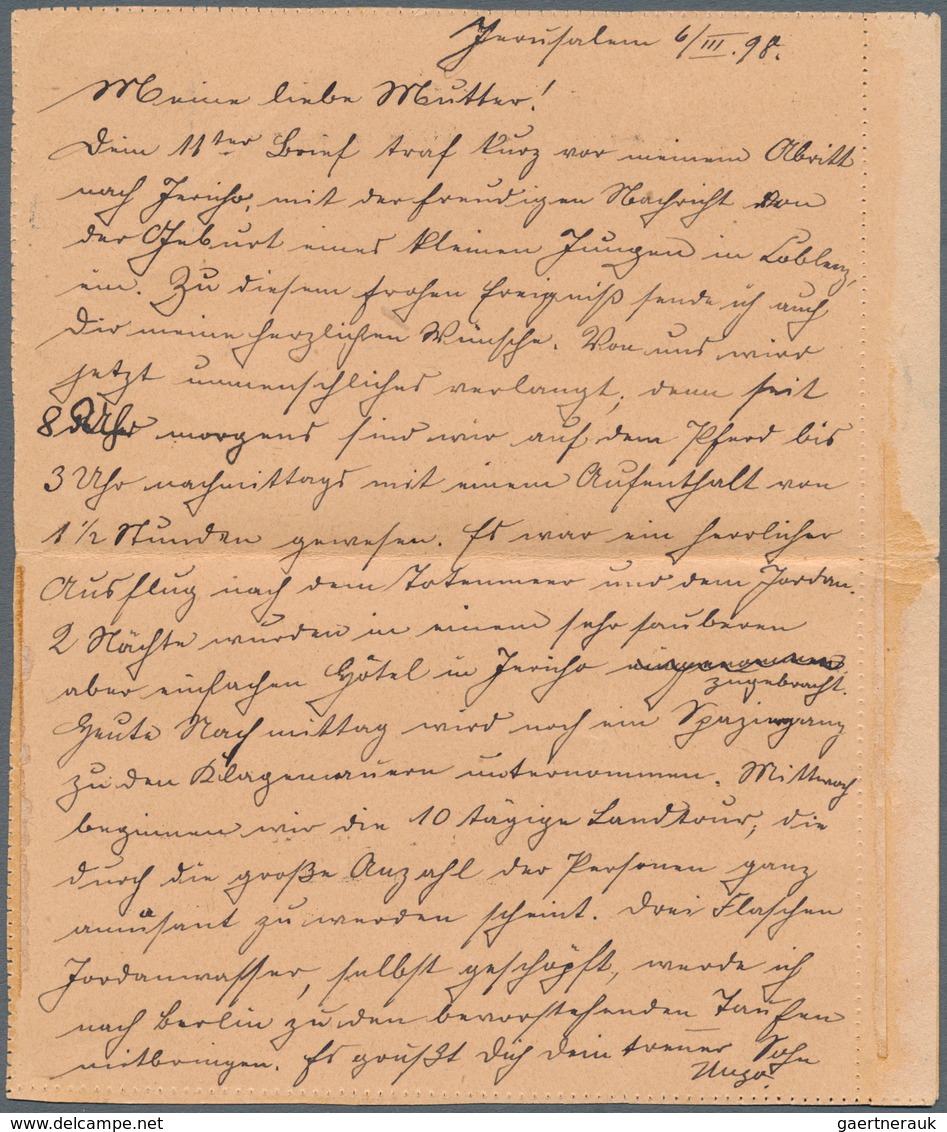 Jerusalem 6/III. 98.
Meine liebe Mutter!
Dein 11ter Brief traf kurz vor meinem Abritt
nach Jericho, mit der freudigen Nachricht von
der Geburt eines kleinen Jungen in Coblenz,
ein. Zu diesem frohen Ereigniß sende ich auch
Dir meine herzlichsten Wünsche. Von uns wird
jetzt unmenschliches verlangt, denn seit
8 Uhr morgens sind wir auf dem Pferd bis
3 Uhr nachmittags mit einem Aufenthalt von
1 1/2 Stunden gewesen. Es war ein herrlicher
Ausflug nach dem Totenmeer und dem Jordan.
2 Nächte wurden in einem sehr sauberen
aber einfachen Hôtel in Jericho
zugebracht.
Heute Nachmittag wird noch ein Spaziergang
zu den Klagemauern unternommen. Mittwoch
beginnen wir die 10 tägige Landtour, die
durch die große Anzahl der Personen ganz
amüsant zu werden scheint. Drei Flaschen
Jordanwasser, selbst geschöpft, werde ich
nach Berlin zu den bevorstehenden Taufen
mitbringen. Es grüßt Dich dein treuer Sohn
Hugo.
gaertnerauk